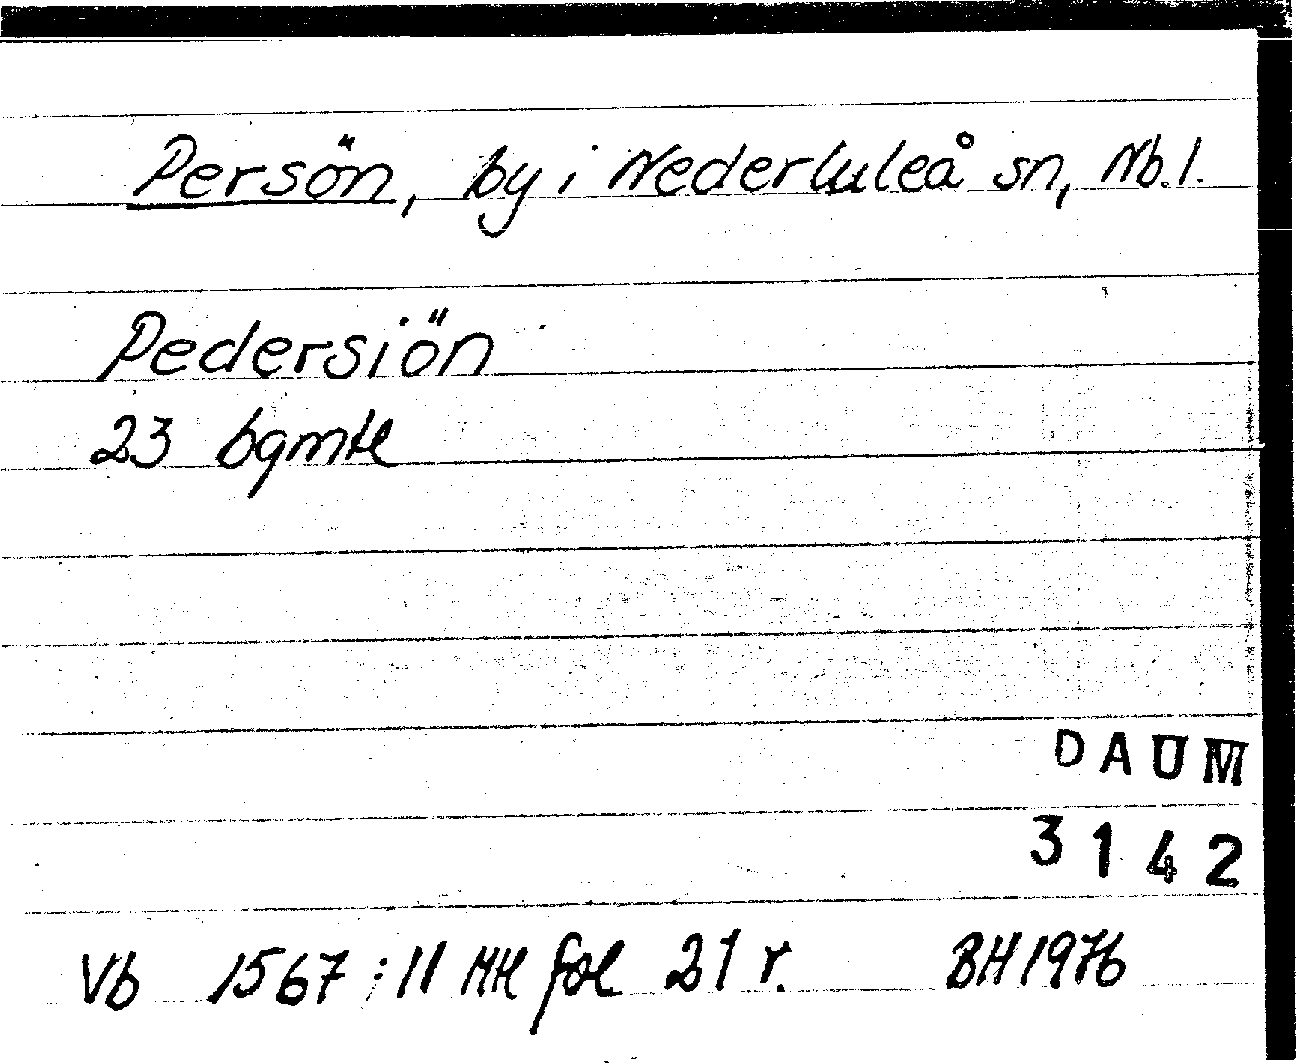 Persön, by i Nederluleå sn, Nb.l.
Pedersiön
23 bgmtl
DAUM
3142
Vb 1567:11 ML fol 21 r. BH 1976